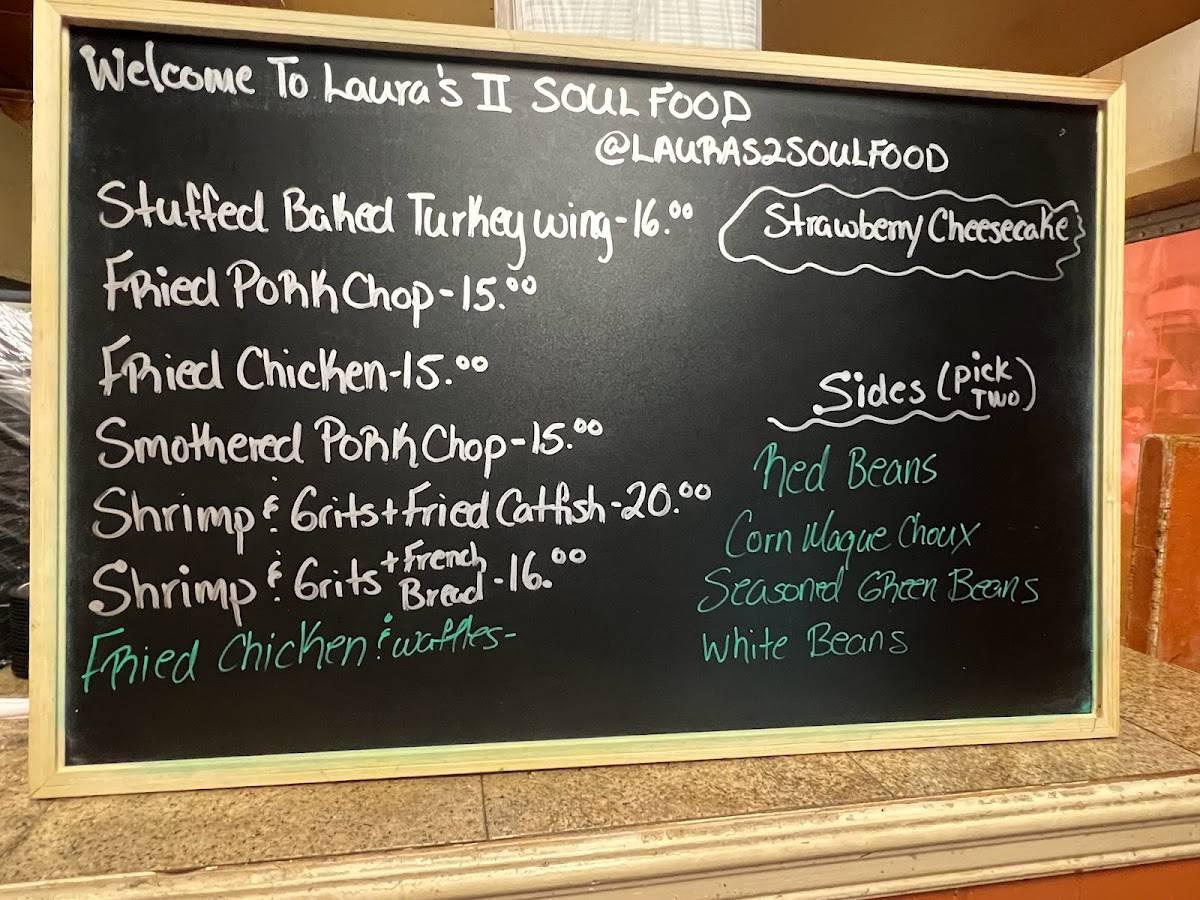 Welcome To Laura's II SOUL FOOD
@LAURAS2SOULFOOD
Stuffed Baked Turkey wing - 16.00
Fried Pork Chop - 15.00
Fried Chicken - 15.00
Smothered Pork Chop - 15.00
Shrimp & Grits + Fried Catfish - 20.00
Shrimp & Grits + French Bread - 16.00
Fried Chicken & waffles -
Strawberry Cheesecake
Sides (pick TWO)
Red Beans
Corn Maque Choux
Seasoned Green Beans
White Beans